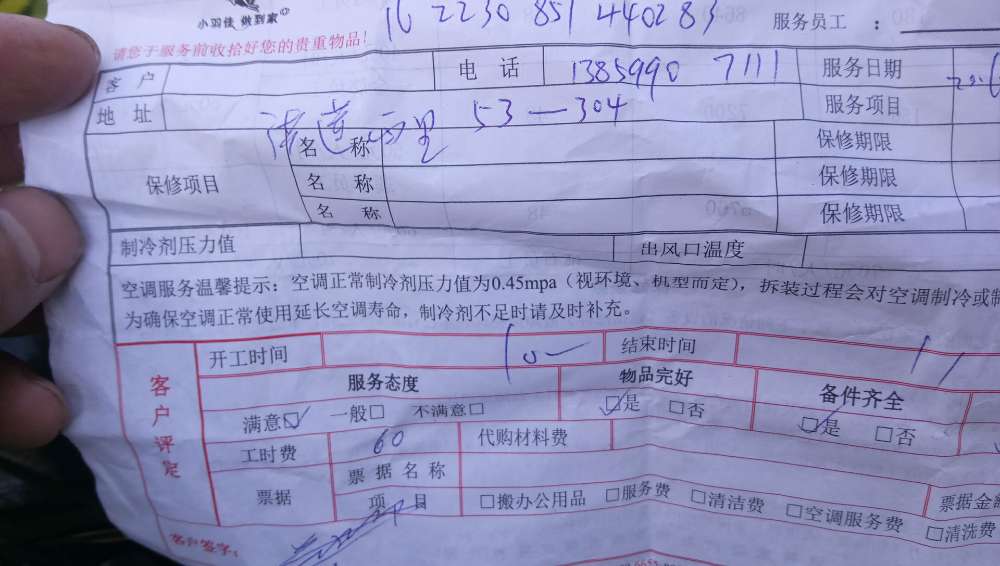 小羽佳 做到家
16 2230 851 440283
服务员工：
请您于服务前收拾好您的贵重物品!
客户 电话 1385990 7111 服务日期
地址 53—304 服务项目
保修项目 名称 保修期限
名称 保修期限
名称 保修期限
制冷剂压力值 出风口温度
空调服务温馨提示：空调正常制冷剂压力值为0.45mpa（视环境、机型而定），拆装过程会对空调制冷或制
为确保空调正常使用延长空调寿命，制冷剂不足时请及时补充。
客户评定
开工时间 10 结束时间 11
服务态度 物品完好 备件齐全
满意☑ 一般□ 不满意□ ☑是 □否 ☑是 □否
工时费 60 代购材料费
票据 票据名称
项目 □搬办公用品 □服务费 □清洁费 □空调服务费 □清洗费 票据金额
客户签字：